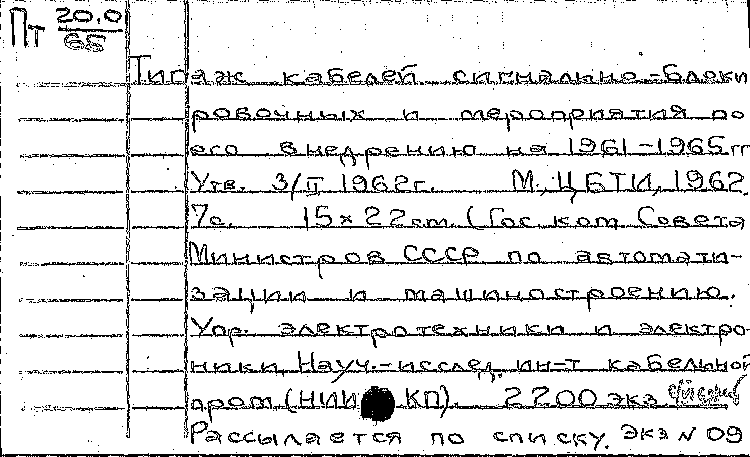 Пт 20.0/65
Типаж кабелей сигнально-блоки
ровочных и мероприятия по
его внедрению на 1961-1965гг
Утв. 3/II 1962г. М., ЦБТИ, 1962.
7с. 15×22см. (Гос. ком. Совета
Министров СССР по автомати-
зации и машиностроению.
Упр. электротехники и электро
ники. Науч.-исслед. ин-т кабельной
пром. (НИИ КП). 2200 экз.
Рассылается по списку. Экз N 09